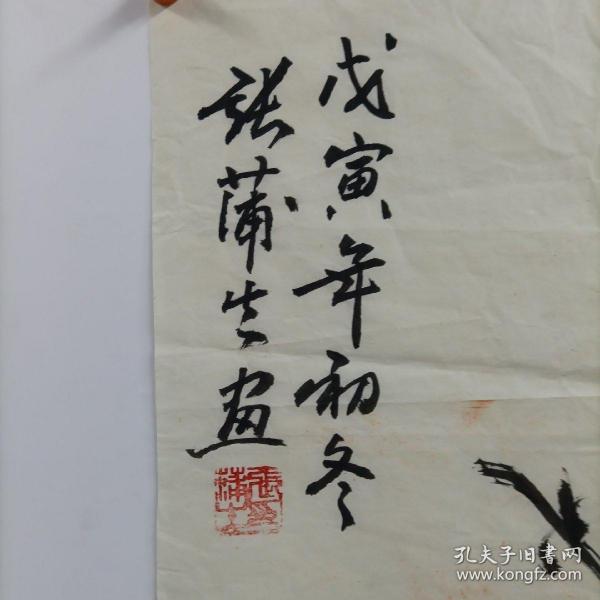 戊寅年初冬
張蒲生画
張蒲生
孔夫子旧书网
www.kongfz.com